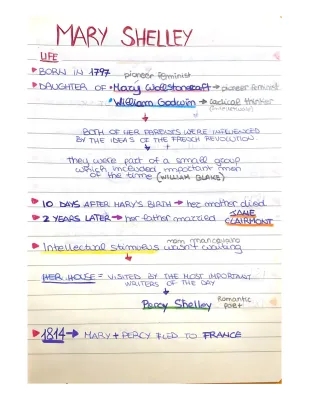 MARY SHELLEY
LIFE
BORN IN 1797
pioneer feminist
DAUGHTER OF • Mary Wollstonecraft → pioneer feminist
• William Godwin → radical thinker
BOTH OF HER PARENTS WERE INFLUENCED
BY THE IDEAS OF THE FRENCH REVOLUTION
They were part of a small group
which included important men
of the time (WILLIAM BLAKE)
10 DAYS AFTER MARY'S BIRTH → her mother died
2 YEARS LATER → her father married JANE CLAIRMONT
Intellectual stimulus wasn't
HER HOUSE = VISITED BY THE MOST IMPORTANT
WRITERS OF THE DAY
Percy Shelley Romantic poet
1814 → MARY + PERCY FLED TO FRANCE